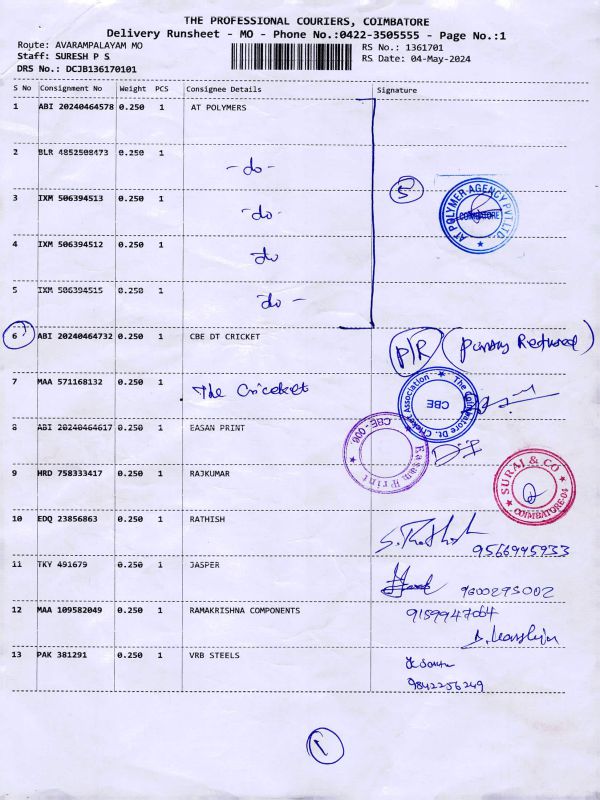 THE PROFESSIONAL COURIERS, COIMBATORE
Delivery Runsheet - MO - Phone No.:0422-3505555 - Page No.:1
Route: AVARAMPALAYAM MO RS No.: 1361701
Staff: SURESH P S RS Date: 04-May-2024
DRS No.: DCJB136170101
S No Consignment No Weight PCS Consignee Details Signature
1 ABI 20240464578 0.250 1 AT POLYMERS
2 BLR 4852508473 0.250 1 - do -
5
AT POLYMER AGENCY PVT LTD. COIMBATORE
3 IXM 506394513 0.250 1 - do -
4 IXM 506394512 0.250 1 do
5 IXM 506394515 0.250 1 do -
6 ABI 20240464732 0.250 1 CBE DT CRICKET P/R
7 MAA 571168132 0.250 1 The Cricket
The Coimbatore Dt. Cricket Association CBE
8 ABI 20240464617 0.250 1 EASAN PRINT
Easan Print CBE - 006.
9 HRD 758333417 0.250 1 RAJKUMAR
SURAJ & CO COIMBATORE-04
10 EDQ 23856863 0.250 1 RATHISH S. Rathish
9566945933
11 TKY 491679 0.250 1 JASPER 9600295002
12 MAA 109582049 0.250 1 RAMAKRISHNA COMPONENTS 9159947064
13 PAK 381291 0.250 1 VRB STEELS
9842256249
1